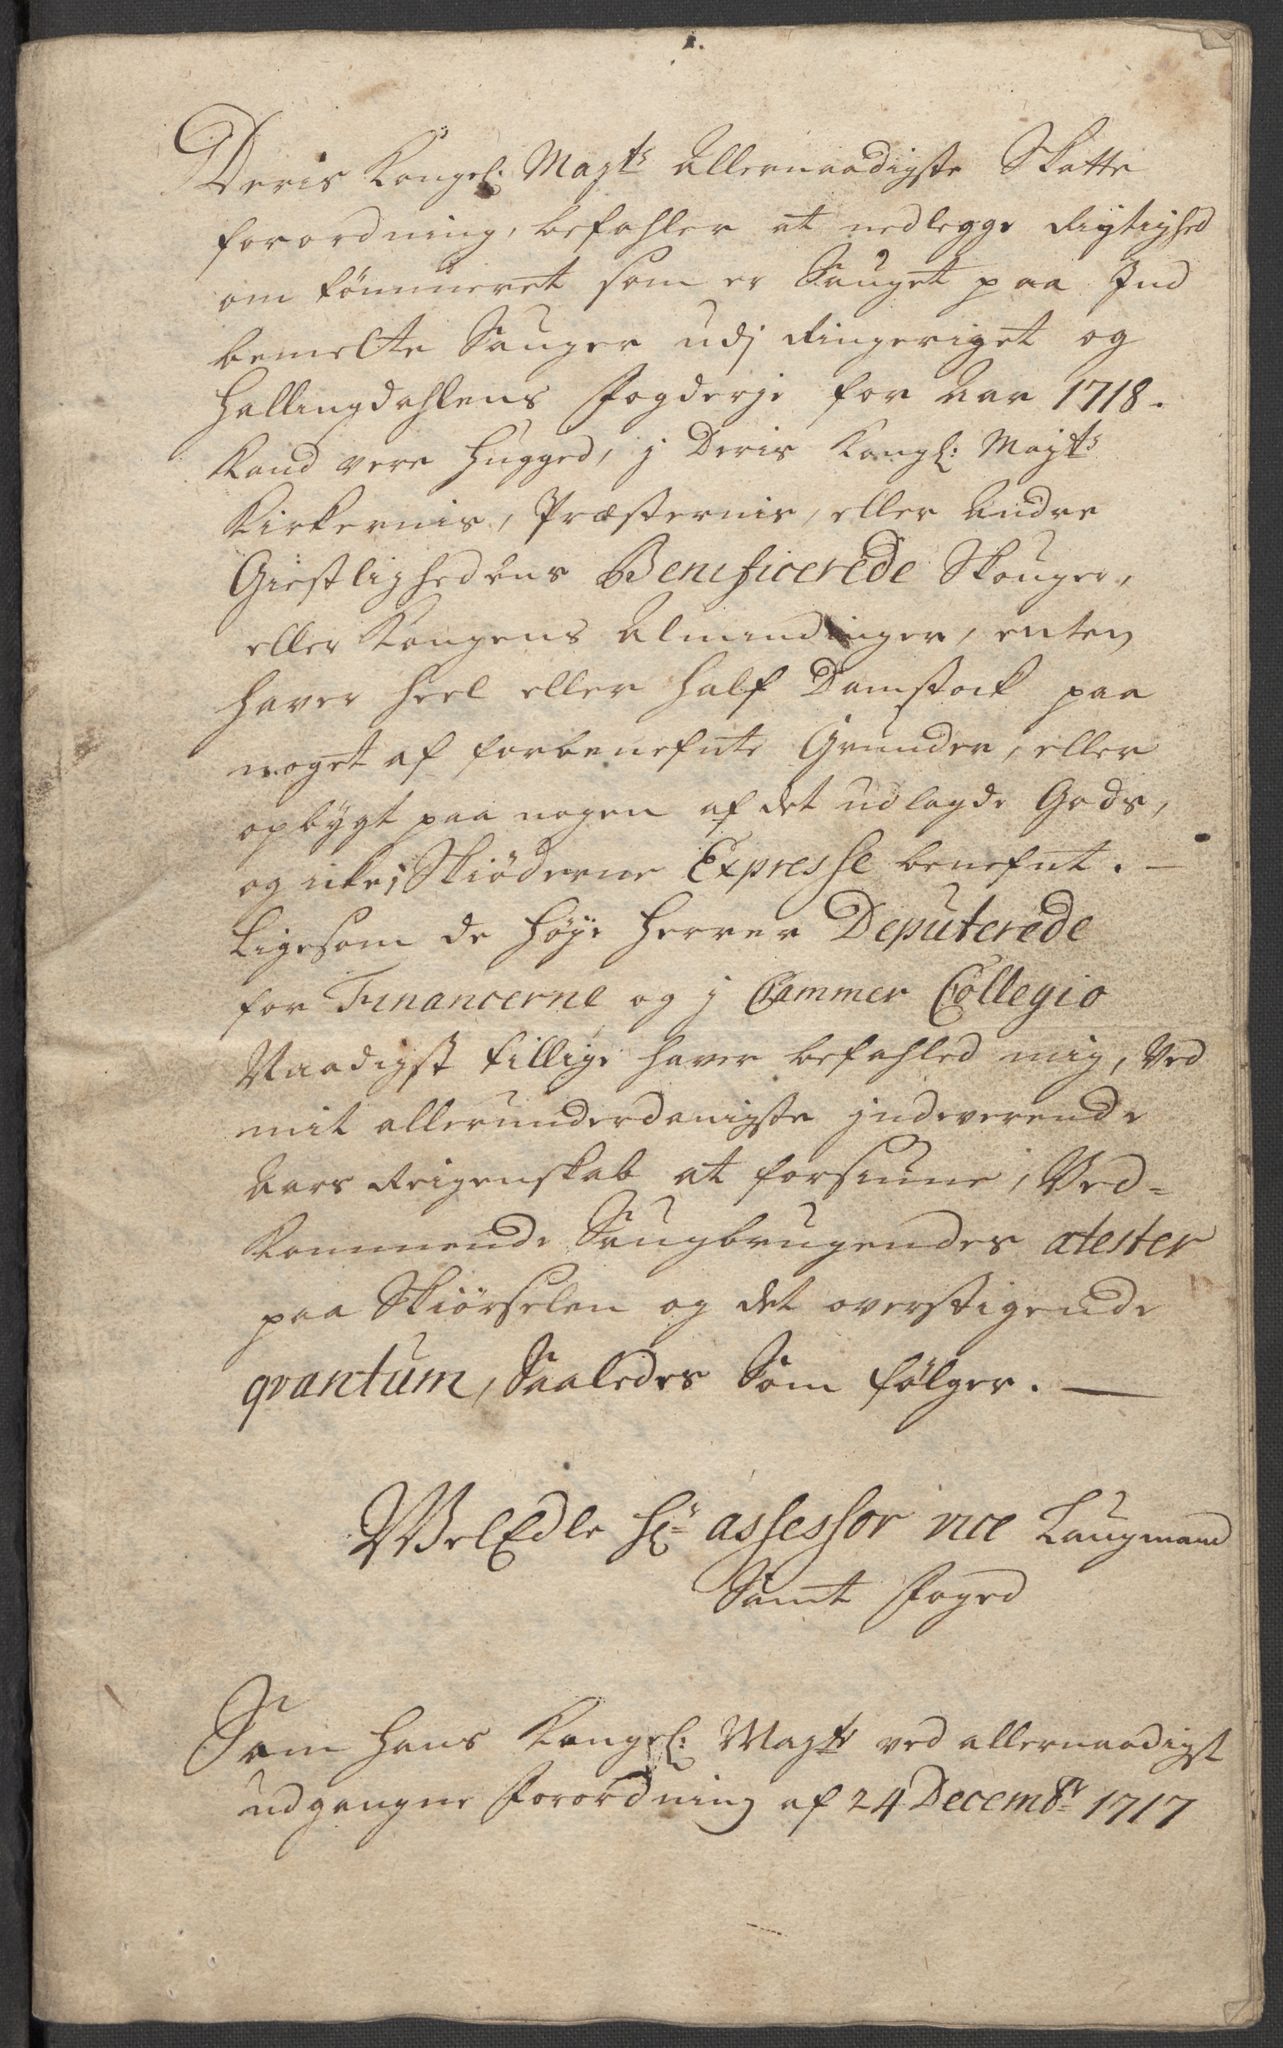 1.
Deris Kongel: Mayts Allernaadigste Skatte
forordning, befahler at nedlegge Rigtighed
om tømmeret som er Sauget paa Ind
bemelte Sauger udj Ringeriget og
Hallingdahlens Fogderje for Aar 1718.
Kand vere Hugged, j Deris Kongl: Mayts
Kirkernis, Præsternis, eller Andre
Giestlighedens Benificerede Skouger,
eller Kongens Almindinger, enten
haver heel eller half Damstock paa
noget af forbenefnte Grunder, eller
opbÿgt paa nogen af det udlagde Gods,
og icke i Skiøderne Expresse benefnt. —
Ligesom de Høÿe Herrer Deputerede
for Financerne og j Cammer Collegio
Naadigst tillige haver befahled mig, Ved
mit allerunderdanigste jndeverende
Aars Reigenskab at forsiune, Ved=
Kommende Saugbrugendes atester
paa Skiørselen og det overstigende
qvantum, Saaledes Som følger. —
WelEdle Hr assessor vice Laugmand
Samt Foged
Som Hans Kongel: Mayts ved allernaadigst
udgangne Forordning af 24 Decembr 1717